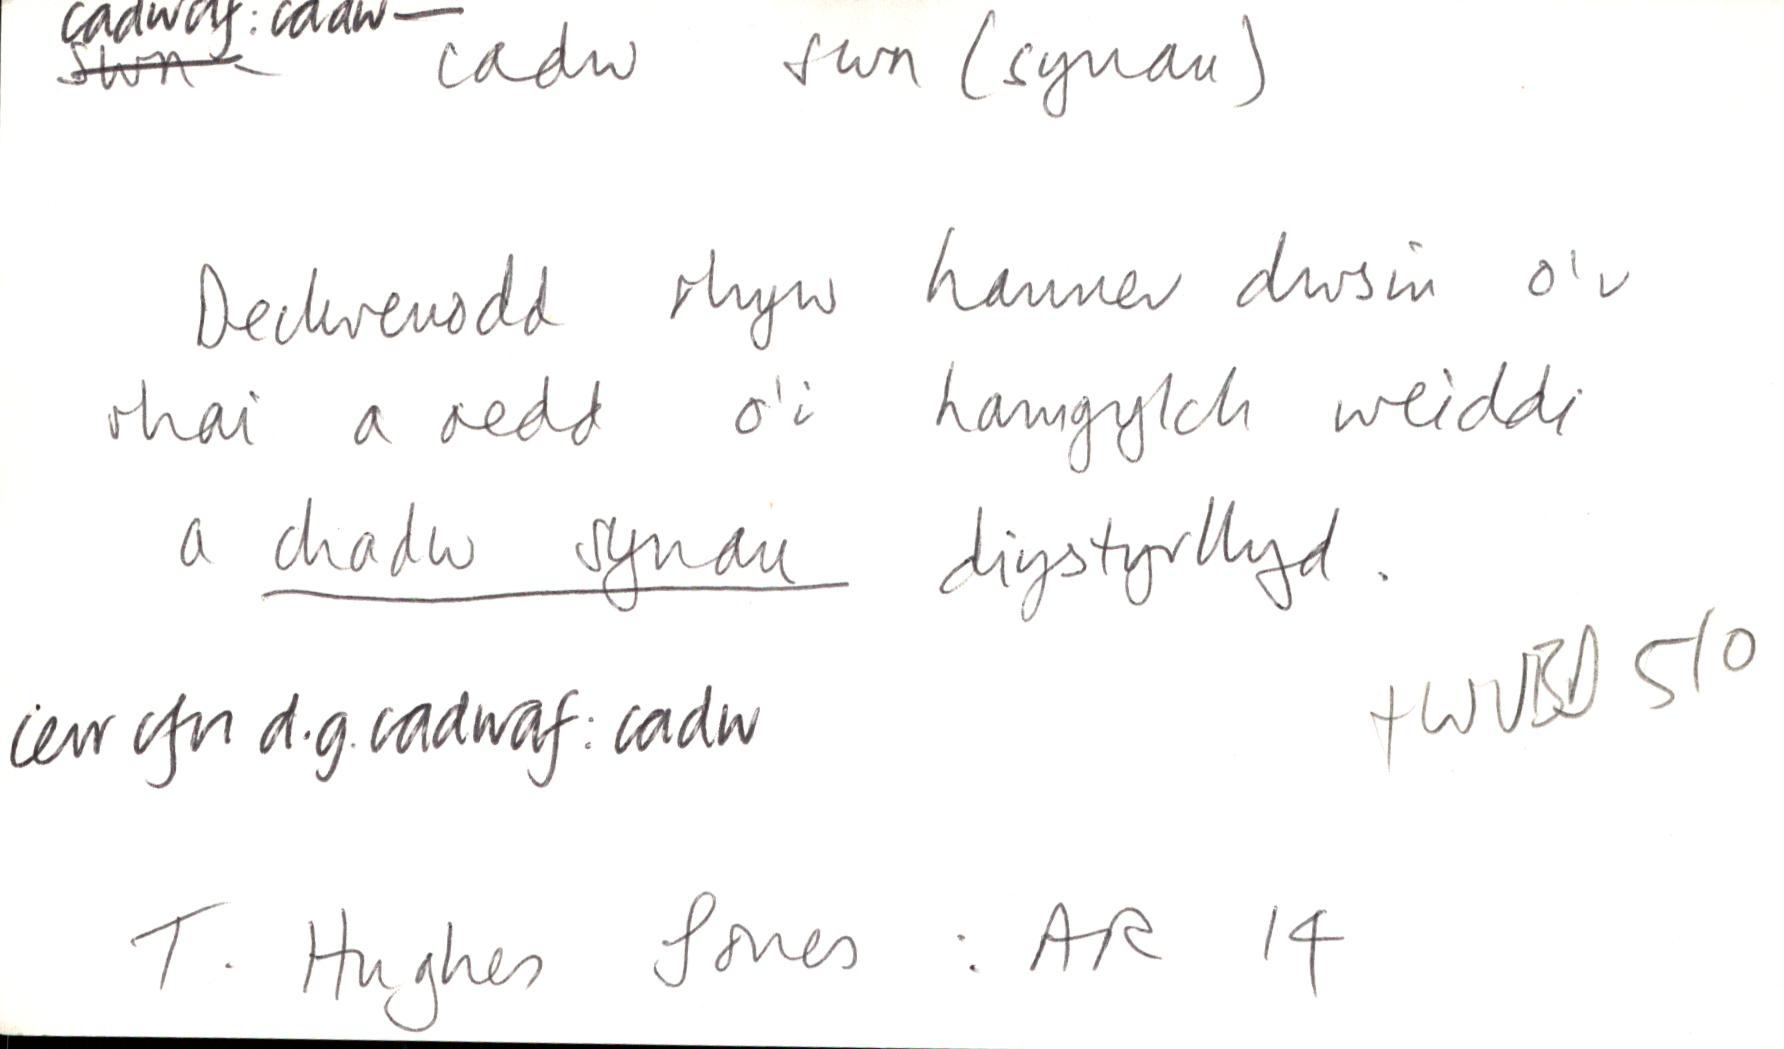 cadwaf: cadw—
swn cadw swn (synau)
Dechreuodd rhyw hanner dwsin o'r
rhai a oedd o'i hamgylch weiddi
a chadw synau diystyrllyd.
+WVBD 510
ieur cfn d.g. cadwaf: cadw
T. Hughes Jones : AR 14